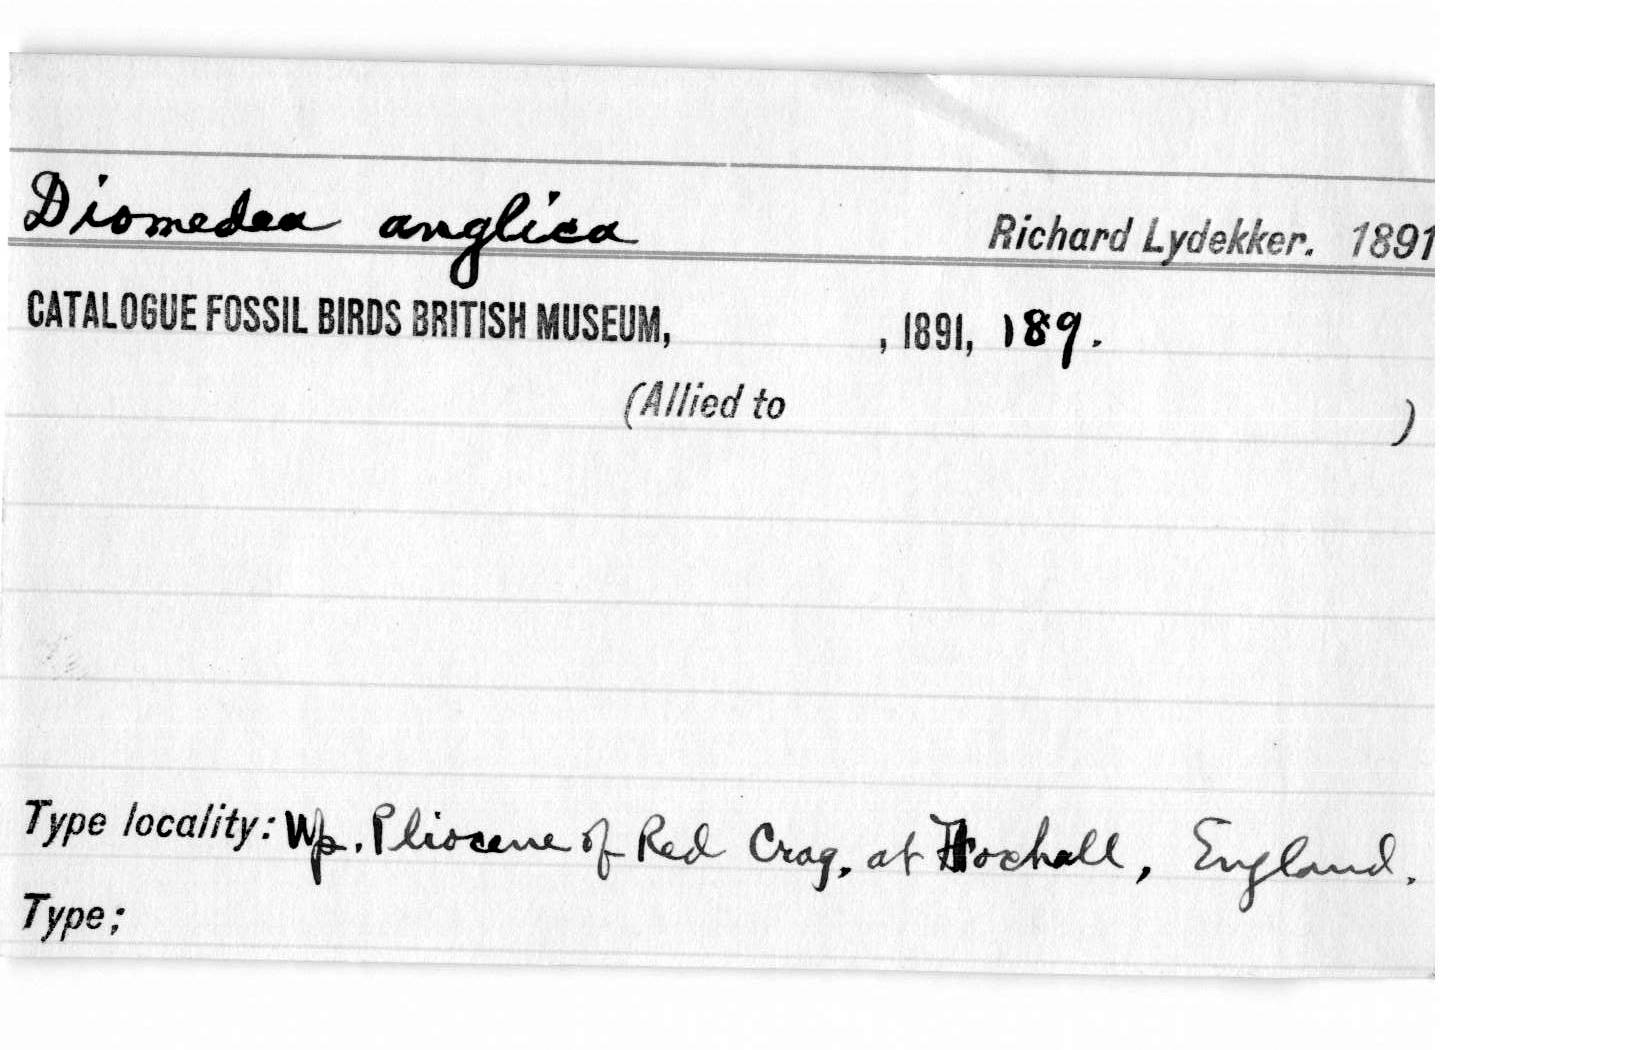 Diomedea anglica Richard Lydekker. 1891
CATALOGUE FOSSIL BIRDS BRITISH MUSEUM, , 1891, 189.
(Allied to )
Type locality: Up. Pliocene of Red Crag, at Foxhall, England.
Type;